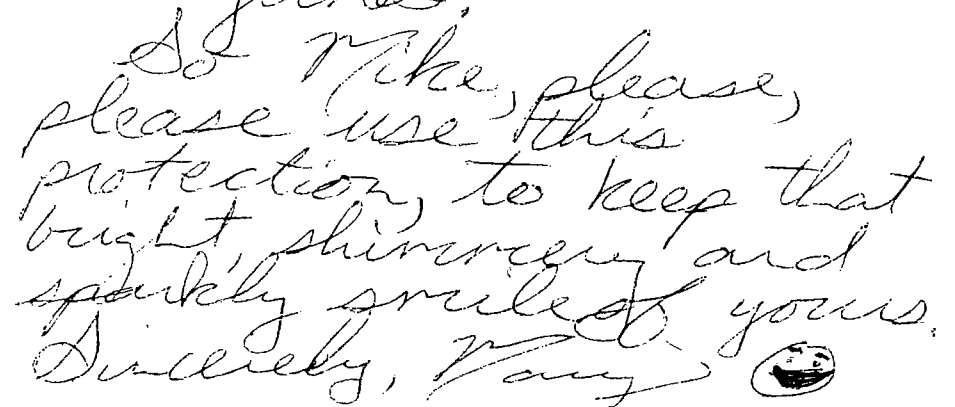 So Mike, please,
please use this
protection, to keep that
bright, shimmery and
sparkly smile of yours.
Sincerely, Mary